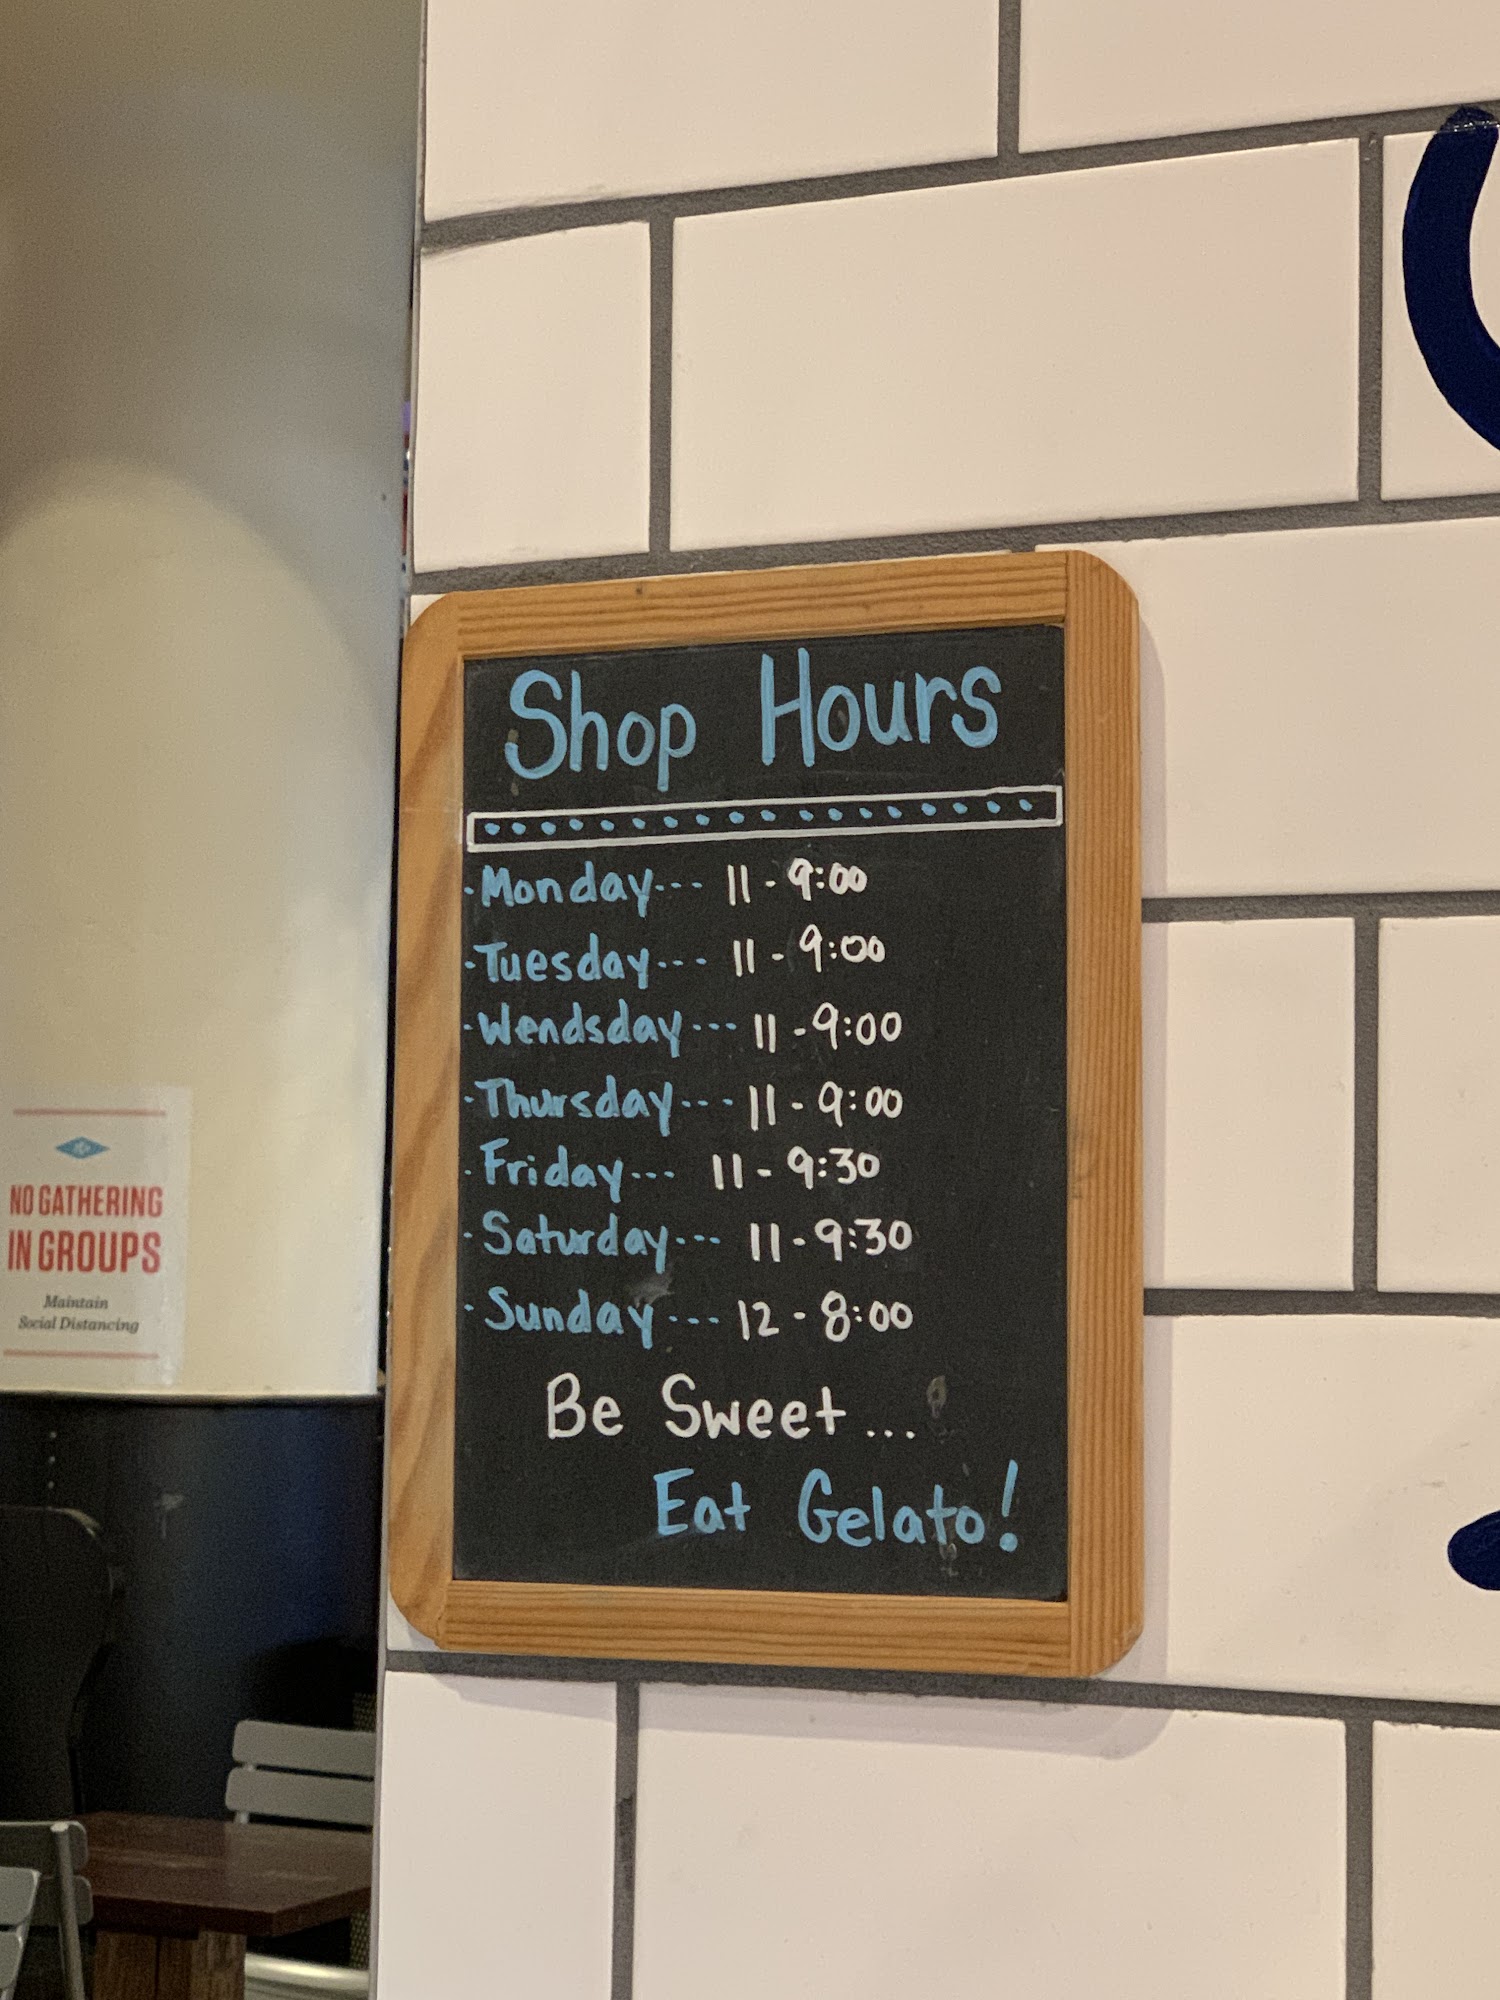 Shop Hours
·Monday--- 11 - 9:00
·Tuesday--- 11 - 9:00
·Wendsday--- 11 - 9:00
·Thursday--- 11 - 9:00
·Friday--- 11 - 9:30
·Saturday--- 11 - 9:30
·Sunday--- 12 - 8:00
Be Sweet...
Eat Gelato!
NO GATHERING
IN GROUPS
Maintain
Social Distancing